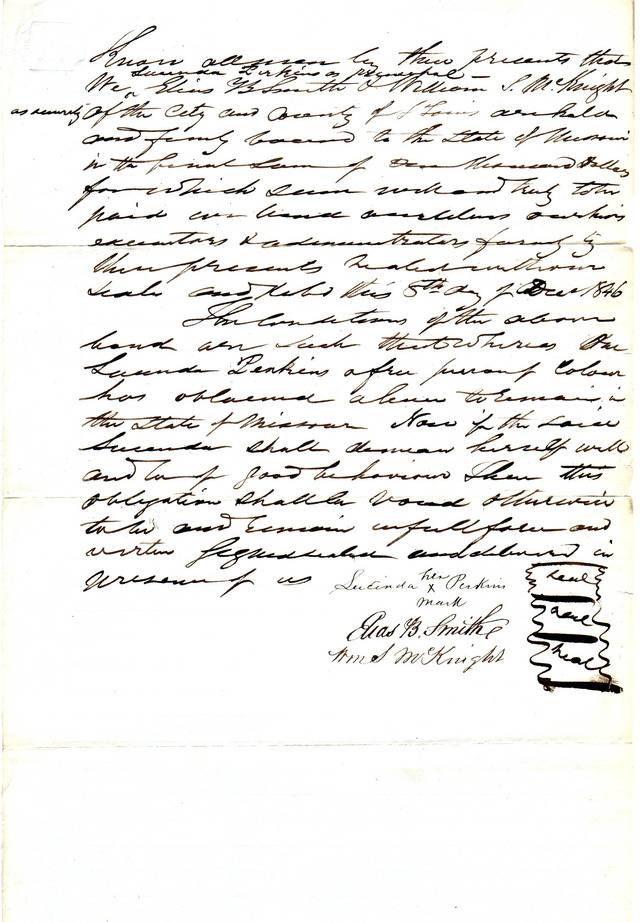 Know all men by these presents that
We Lucinda Perkins as principal Elias B Smith & William S. McKnight
as security of the City and County of St Louis are held
and firmly bound to the State of Missouri
in the penal sum of One Thousand Dollars
for which sum well and truly to be
paid we bind ourselves our heirs
executors & administrators firmly by
these presents sealed with our
seals and dated this 8th day of Dec 1846
The Conditions of the above
bond are such that whereas the
Lucinda Perkins a free person of Colour
has obtained a license to remain in
the State of Missouri Now if the said
Lucinda shall demean herself well
and be of good behaviour then this
obligation shall be void otherwise
to be and remain in full force and
virtue Signed sealed and delivered in
presence of us
Lucinda her x Perkins
mark
Elias B. Smith
Wm S McKnight
seal
seal
seal